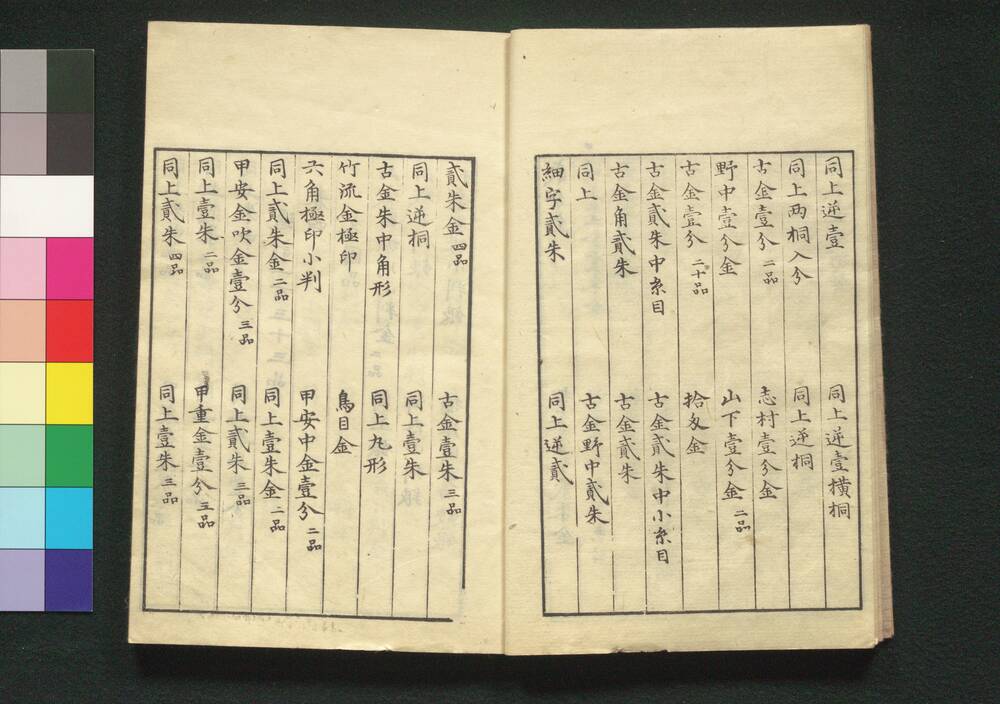 同上逆壹　同上逆壹横桐
同上两桐入分　同上逆桐
古金壹分二品　志村壹分金
野中壹分金　山下壹分金二品
古金壹分二十品　拾匁金
古金貳朱中糸目　古金貳朱中小糸目
古金角貳朱　古金貳朱
同上　古金野中貳朱
細字貳朱　同上逆貳
貳朱金四品　古金壹朱三品
同上逆桐　同上壹朱
古金朱中角形　同上丸形
竹流金極印　鳥目金
六角極印小判　甲安中金壹分二品
同上貳朱金二品　同上壹朱金二品
甲安金吹金壹分三品　同上貳朱三品
同上壹朱二品　甲重金壹分三品
同上貳朱四品　同上壹朱三品